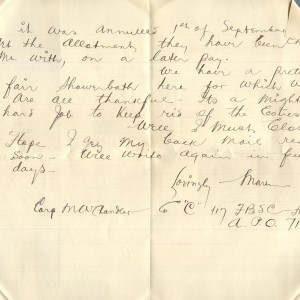 it was annulled 1st of September
the Allotment, they have been
me with, on a later pay.
we have a
fair Shower bath here for which w
Are are thankful - Its a might
hard Job to keep rid of the Coties
- Well I Must Clo
Hope I get My back Mail
Soon - Will Write again in few
days.
Lovingly
Corp M W Chandler Co "C" 117 F.B.S.C.
A.P.O. 71